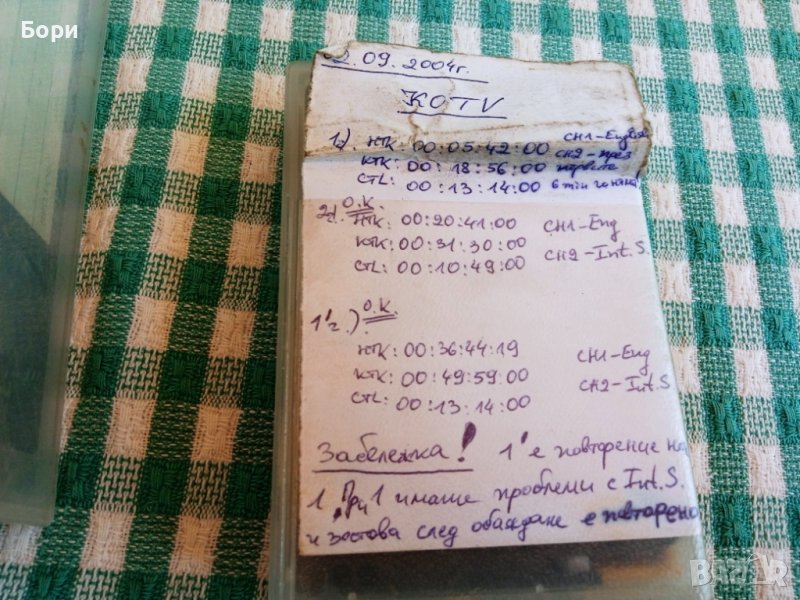 Бори
2.09.2004г.
KOTV
1). НТК: 00:05:42:00 CH1-English
КТК: 00:18:56:00 CH2-през първите
CTL: 00:13:14:00 6 min
O.K.
2). НТК: 00:20:41:00 CH1-Eng
КТК: 00:31:30:00 CH2-Int.S.
CTL: 00:10:49:00
O.K.
НТК: 00:36:44:19 CH1-Eng
КТК: 00:49:59:00 CH2-Int.S
CTL: 00:13:14:00
Забележка! 1' е повторение на
1. При 1 имаше проблеми с Int.S.
и затова след обаждане е повторено
BAZAR